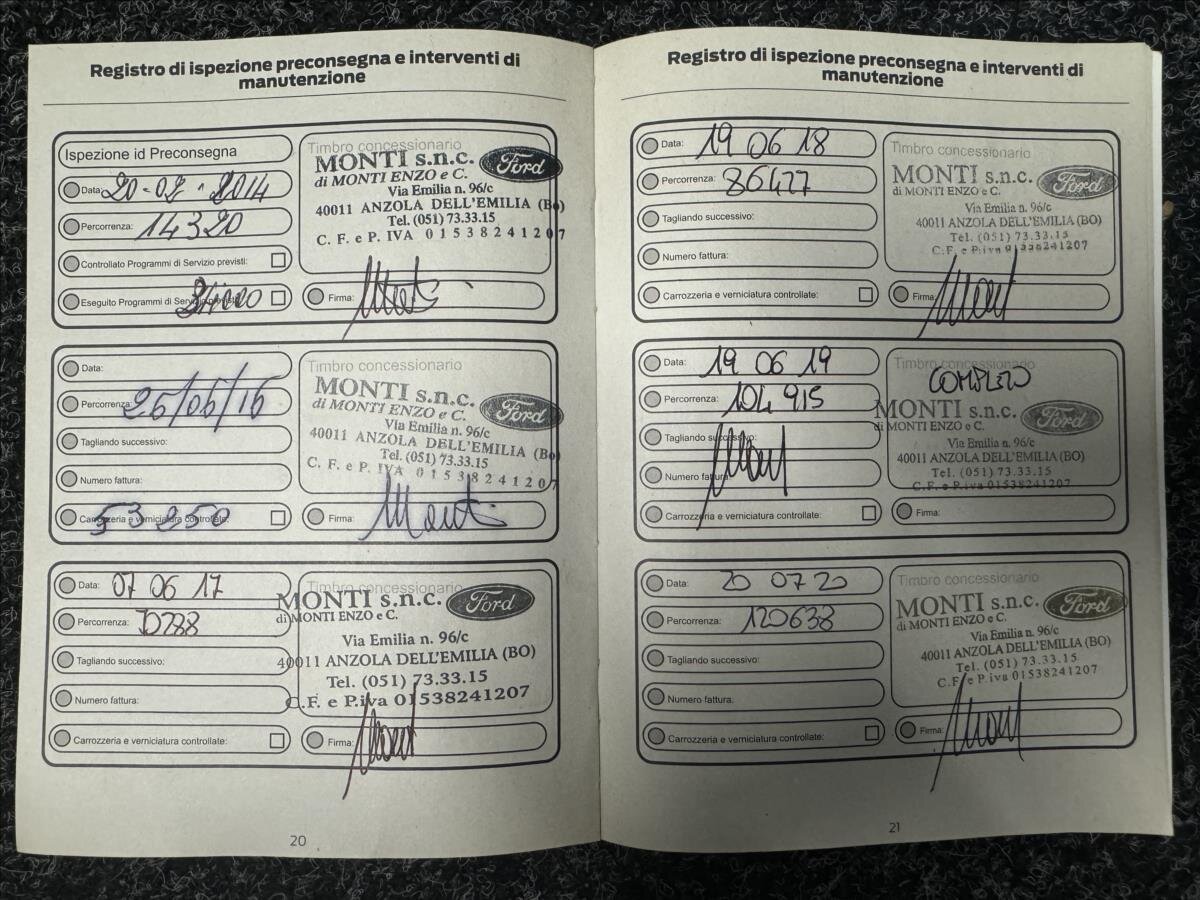 Registro di ispezione preconsegna e interventi di
manutenzione
Ispezione id Preconsegna
Data:
Percorrenza: 14320
Controllato Programmi di Servizio previsti:
Eseguito Programmi di Servizio previsti:
Timbro concessionario
MONTI s.n.c. Ford
di MONTI ENZO e C.
Via Emilia n. 96/c
40011 ANZOLA DELL'EMILIA (Bo)
Tel. (051) 73.33.15
C. F. e P. IVA 01538241207
Firma:
Data:
Percorrenza:
Tagliando successivo:
Numero fattura:
Carrozzeria e verniciatura controllate:
Timbro concessionario
MONTI s.n.c. Ford
di MONTI ENZO e C.
Via Emilia n. 96/c
40011 ANZOLA DELL'EMILIA (Bo)
Tel. (051) 73.33.15
C. F. e P. IVA 01538241207
Firma:
Data: 07 06 17
Percorrenza:
Tagliando successivo:
Numero fattura:
Carrozzeria e verniciatura controllate:
Timbro concessionario
MONTI s.n.c. Ford
di MONTI ENZO e C.
Via Emilia n. 96/c
40011 ANZOLA DELL'EMILIA (BO)
Tel. (051) 73.33.15
C.F. e P.iva 01538241207
Firma:
20
Registro di ispezione preconsegna e interventi di
manutenzione
Data: 19 06 18
Percorrenza: 86477
Tagliando successivo:
Numero fattura:
Carrozzeria e verniciatura controllate:
Timbro concessionario
MONTI s.n.c. Ford
di MONTI ENZO e C.
Via Emilia n. 96/c
40011 ANZOLA DELL'EMILIA (BO)
Tel. (051) 73.33.15
C.F. e P.iva 01538241207
Firma:
Data: 19 06 19
Percorrenza: 104 915
Tagliando successivo:
Numero fattura:
Carrozzeria e verniciatura controllate:
Timbro concessionario
COMPLETO
MONTI s.n.c. Ford
di MONTI ENZO e C.
Via Emilia n. 96/c
40011 ANZOLA DELL'EMILIA (BO)
Tel. (051) 73.33.15
C.F. e P.iva 01538241207
Firma:
Data: 20 07 20
Percorrenza: 120638
Tagliando successivo:
Numero fattura:
Carrozzeria e verniciatura controllate:
Timbro concessionario
MONTI s.n.c. Ford
di MONTI ENZO e C.
Via Emilia n. 96/c
40011 ANZOLA DELL'EMILIA (BO)
Tel. (051) 73.33.15
C.F. e P.iva 01538241207
Firma:
21